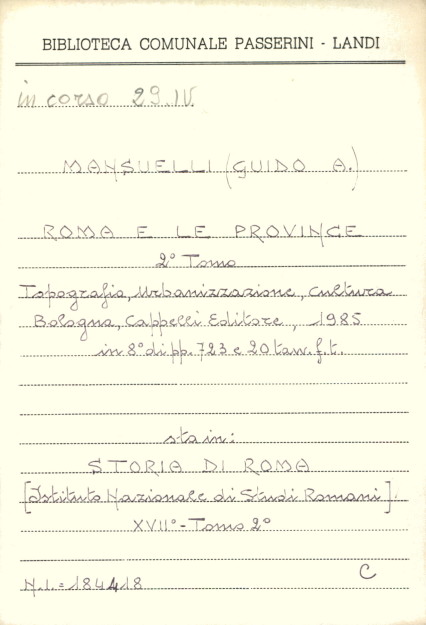 BIBLIOTECA COMUNALE PASSERINI - LANDI
in corso 29.IV.
MANSUELLI (GUIDO A.)
ROMA E LE PROVINCE
2° Tomo
Topografia, Urbanizzazione, Cultura
Bologna, Cappelli Editore, 1985
in 8° di pp. 723 e 20 tav. f. t.
sta in:
STORIA DI ROMA
[Istituto Nazionale di Studi Romani].
XVII° - Tomo 2°
C
N.I. = 184418